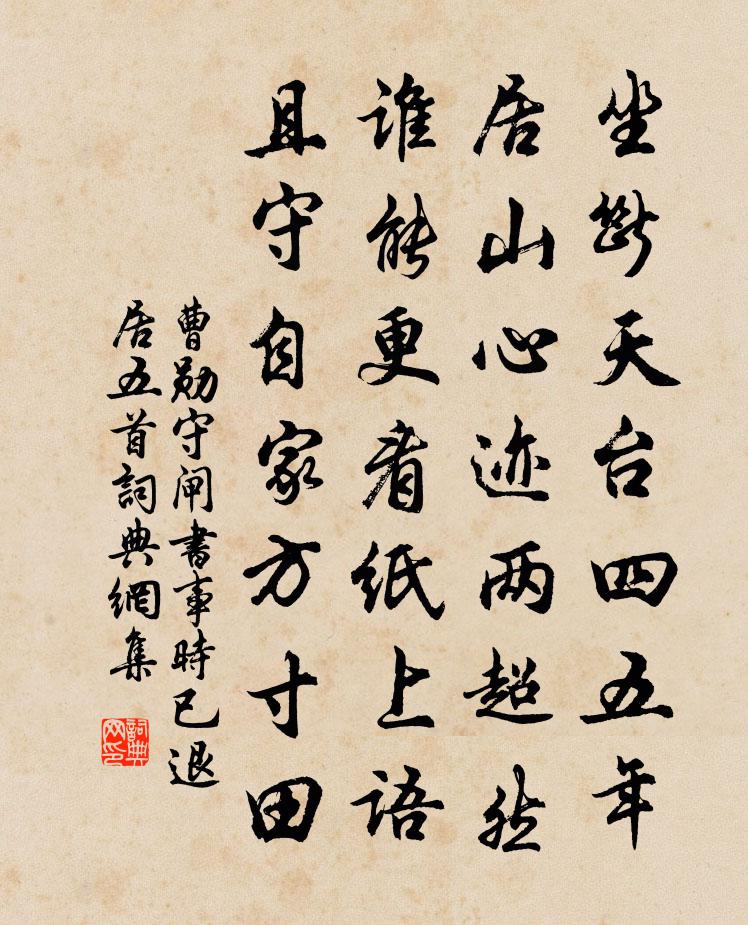 坐断天台四五年
居山心迹两超然
谁能更看纸上语
且守自家方寸田
曹勋守闸書事時已退
居五首詞典網集
詞典网印